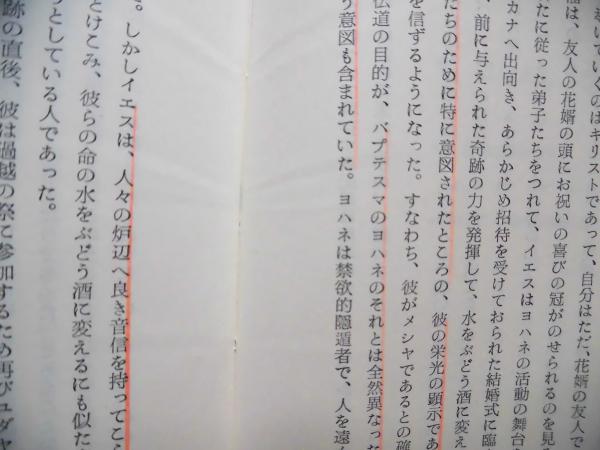 導いていくのはキリストであって、自分はただ、花婿の友人で
福は、友人の花婿の頭にお祝いの喜びの冠がのせられるのを見る
たに従った弟子たちをつれて、イエスはヨハネの活動の舞台
カナへ出向き、あらかじめ招待を受けておられた結婚式に臨
、前に与えられた奇跡の力を発揮して、水をぶどう酒に変え
たちのために特に意図されたところの、彼の栄光の顕示であ
を信ずるようになった。すなわち、彼がメシヤであるとの確
伝道の目的が、バプテスマのヨハネのそれとは全然異なった
う意図も含まれていた。ヨハネは禁欲的隠遁者で、人を遠
る。しかしイエスは、人々の炉辺へ良き音信を持ってこら
とけこみ、彼らの命の水をぶどう酒に変えるにも似た
うとしている人であった。
跡の直後、彼は過越の祭に参加するため再びユダヤ